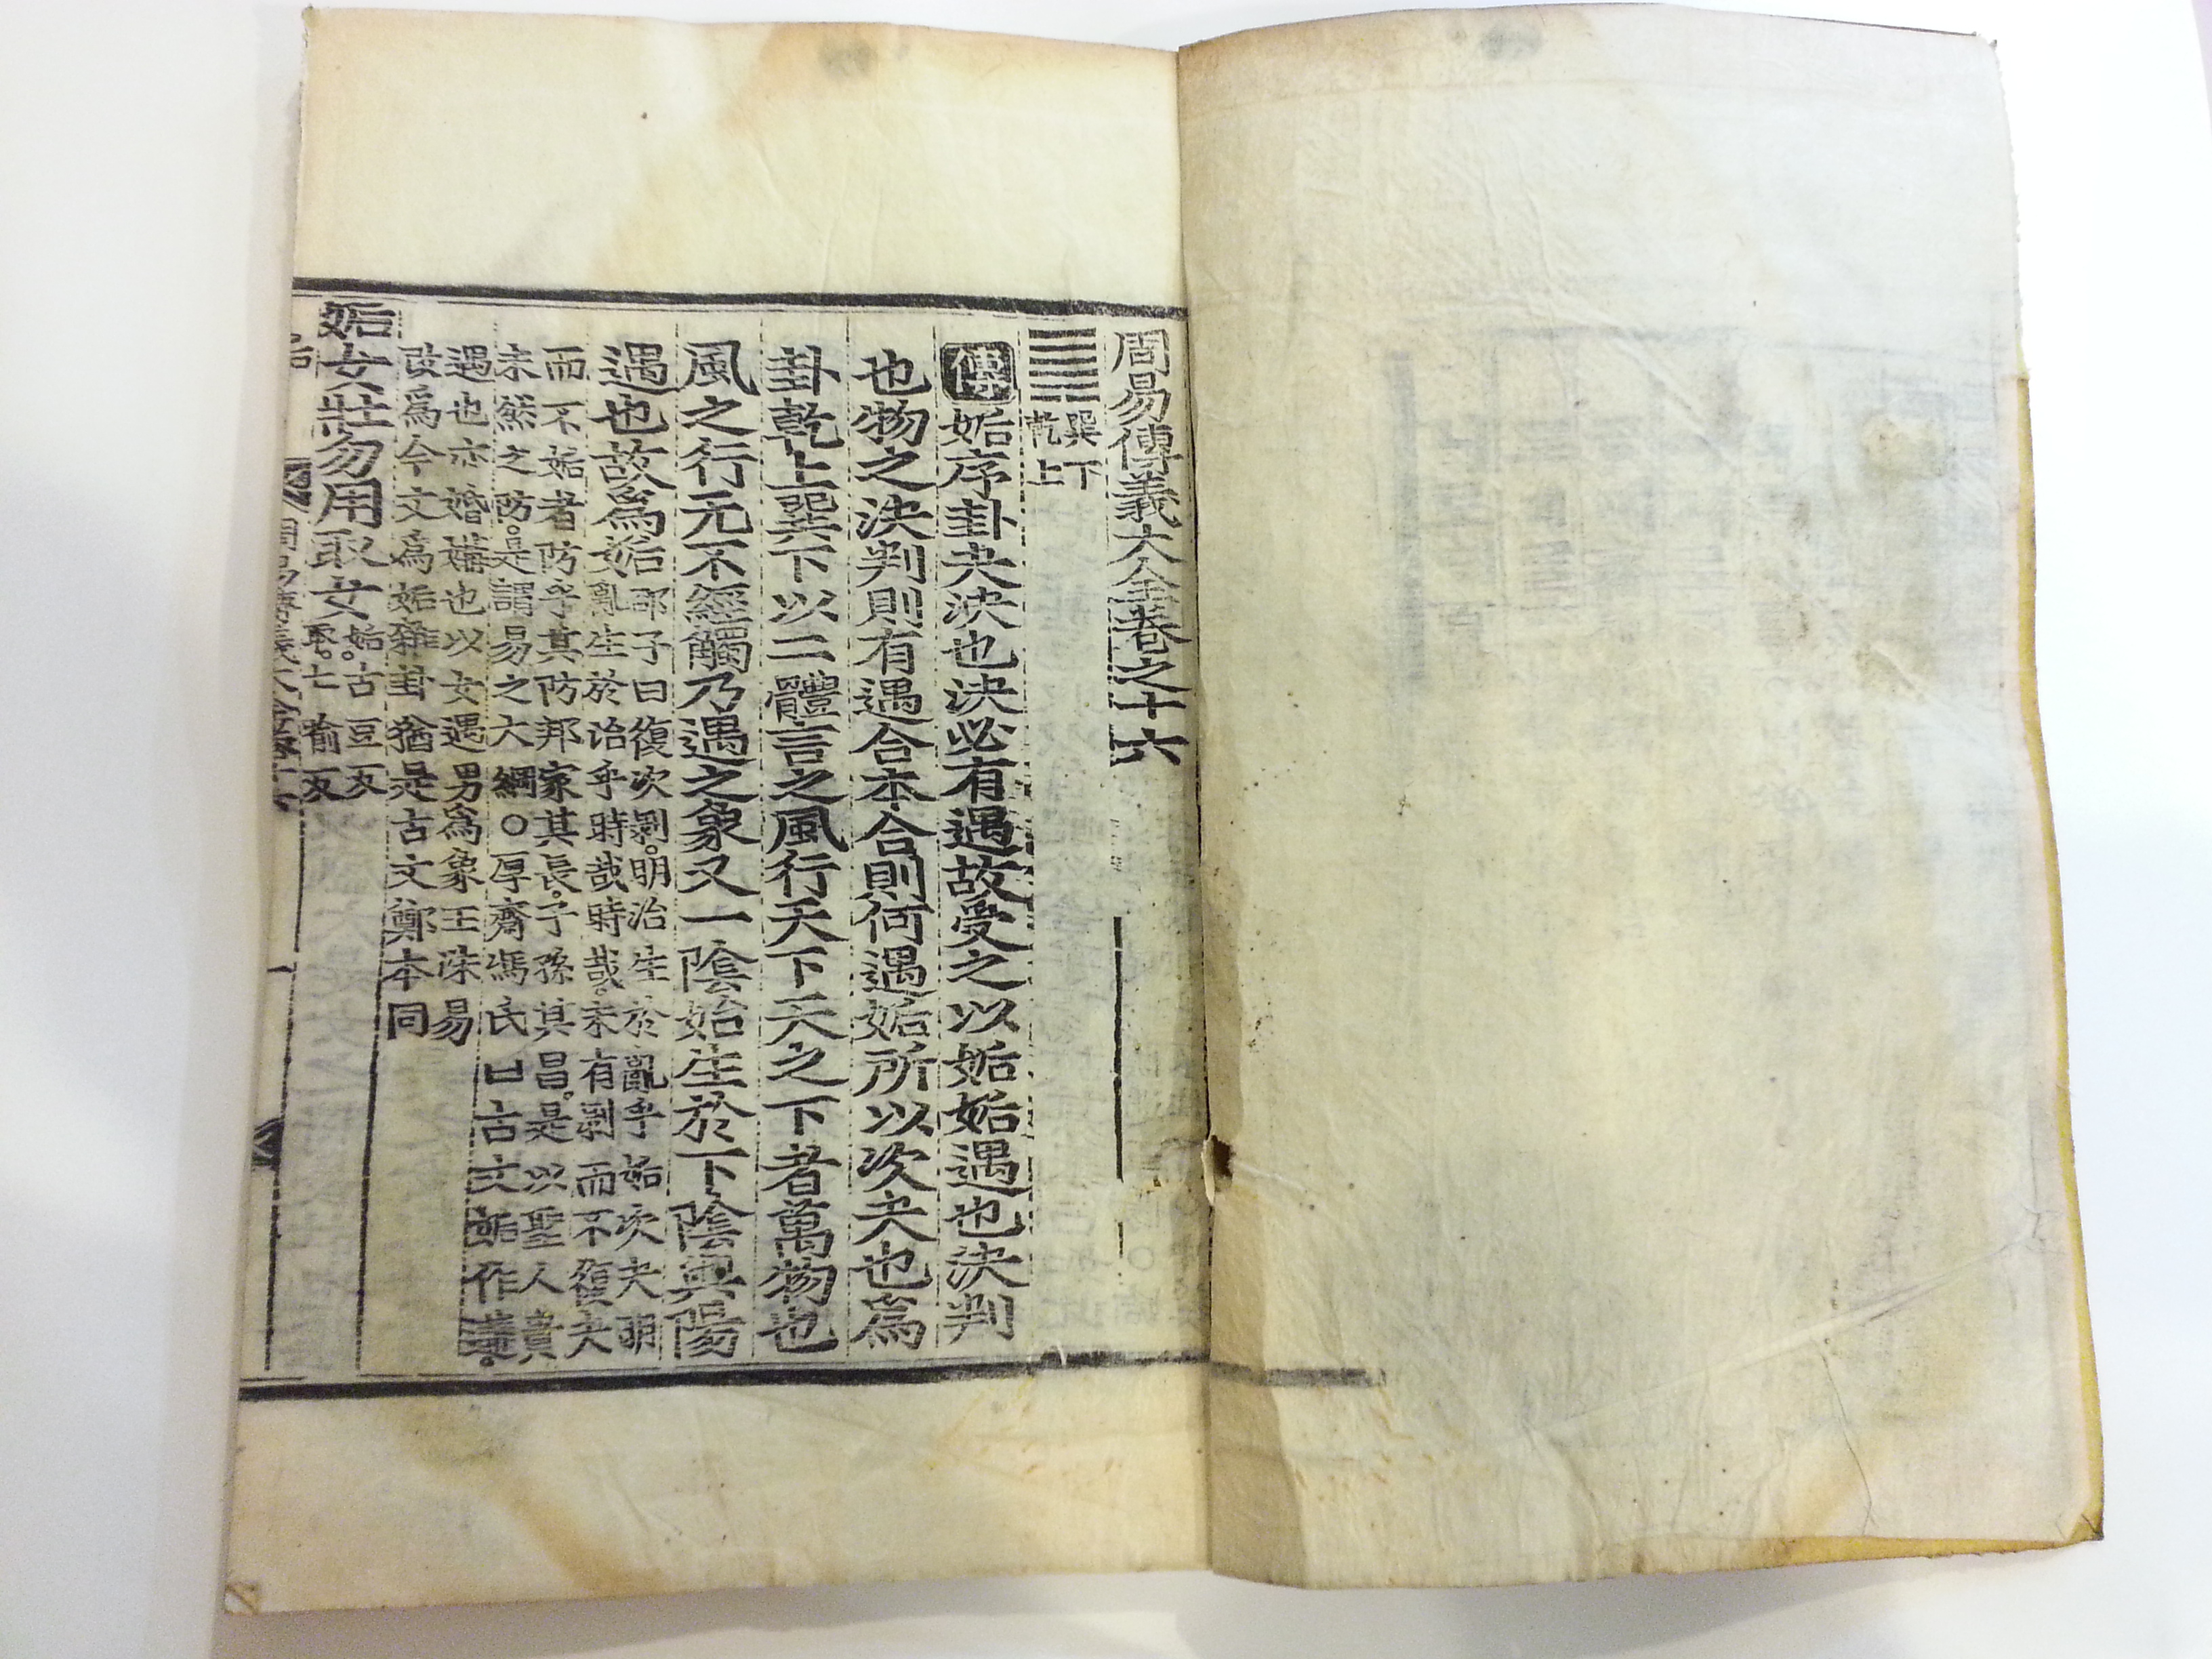 周易傳義大全卷之十六
巽下
乾上
傳姤序卦夬決也決必有遇故受之以姤姤遇也決判
也物之決判則有遇合本合則何遇姤所以次夬也爲
卦乾上巽下以二體言之風行天下天之下者萬物也
風之行元不經觸乃遇之象又一陰始生於下陰與陽
遇也故爲姤
邵子曰復次剝明治生於亂乎姤次夬明
亂生於治乎時哉時哉未有剝而不復未有夬
而不姤者防乎其防邦家其長子孫其昌是以聖人貴
未然之防是謂易之大綱○厚齋馮氏曰古文姤作遘
遇也亦婚媾也以女遇男爲象王洙易
改爲今文爲姤雜卦猶是古文鄭本同
姤女壯勿用取女
姤古豆反
取七喻反